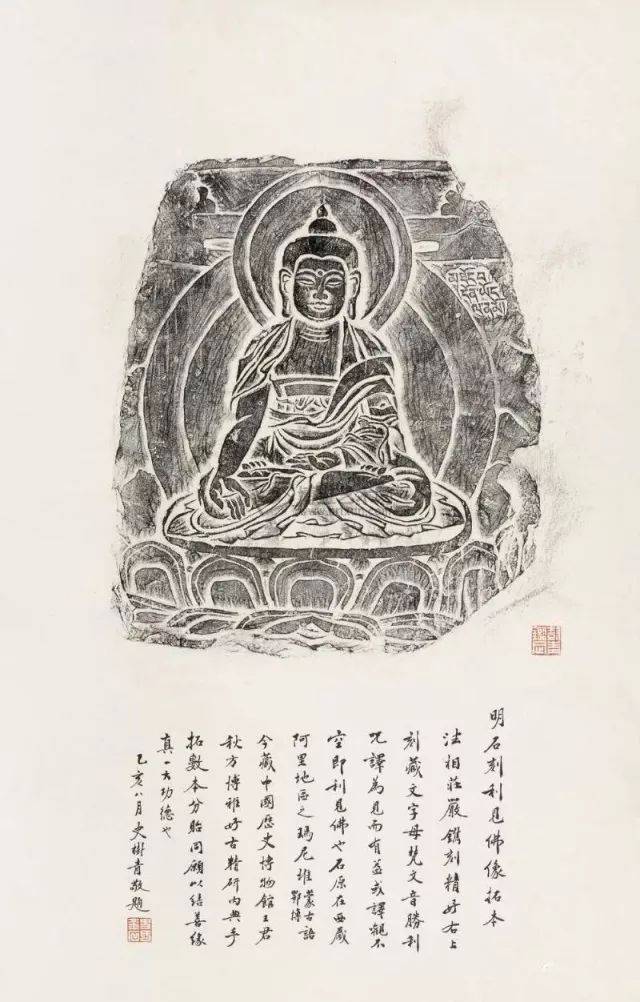 明石刻利見佛像拓本
法相莊嚴鐫刻精好右上
刻藏文字母梵文音勝利
咒譯為見而有益或譯觀不
空即利見佛也石原在西藏
阿里地區之瑪尼堆蒙古語鄂博
今藏中國歷史博物館王君
秋方博雅好古精研內典手
拓數本分貽同願以結善緣
真一大功德也
乙亥八月史樹青敬題